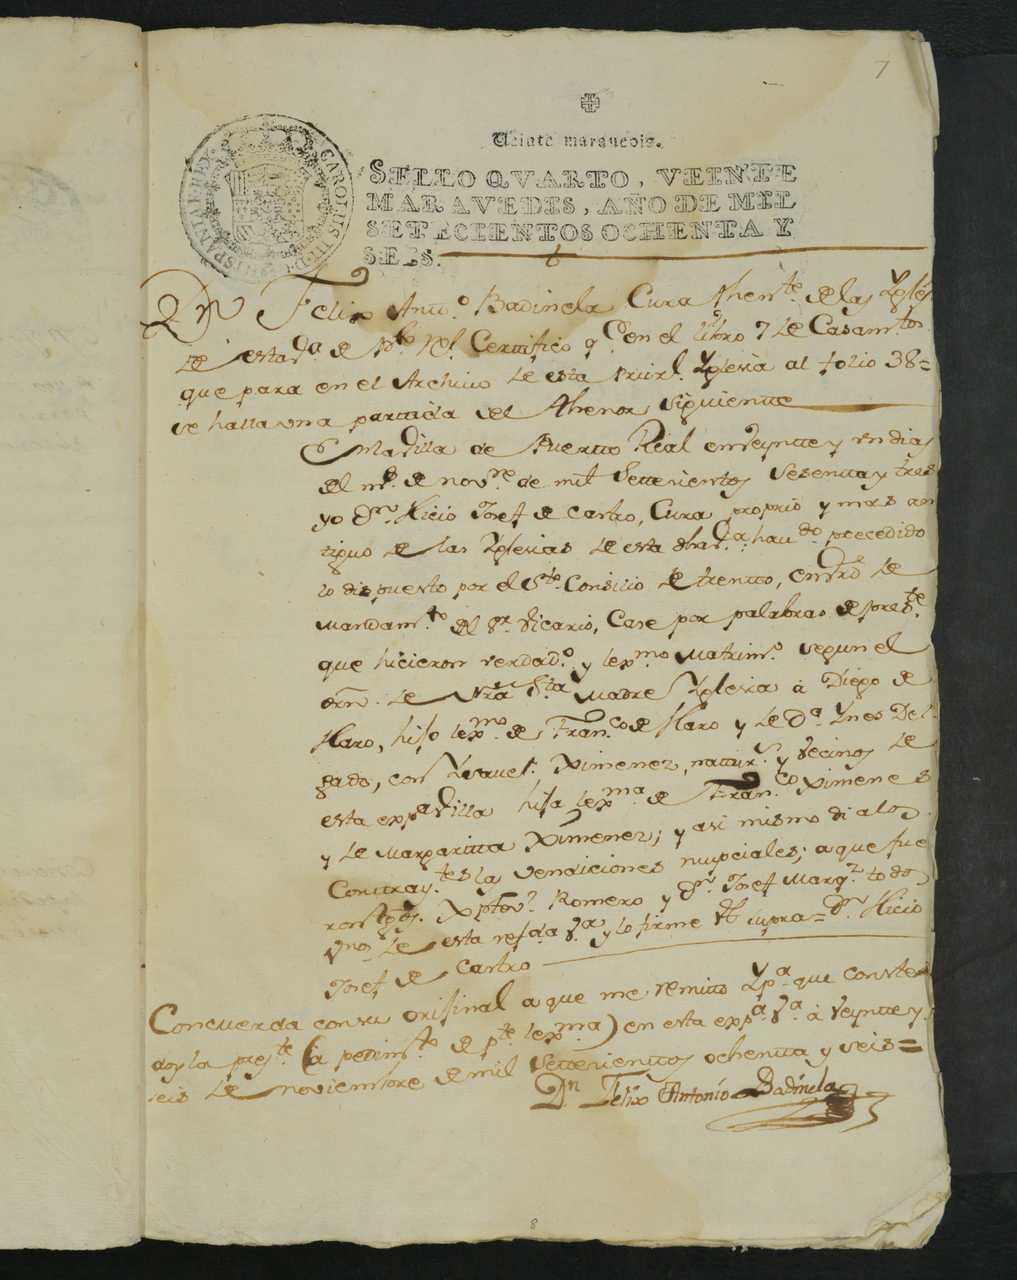 7
Veinte maravedis.
SELLO QVARTO, VEINTE
MARAVEDIS, AÑO DE MIL
SETECIENTOS OCHENTA Y
SEIS.
CAROLUS III D G HISPANIAR REX
Dn Felix Antt.º Badinela Cura Thente. de las Ygleš
de esta d.ª de Pto Rl. Certifico q.e en el libro 7 de Casamtos
que para en el Archivo de esta Prirl. Yglesia al folio 38=
se halla una partida del thenor siguiente
En la Villa de Puertto Real en veyntte y un dias
del ms. de novre de mil settecientos sesentta y tres
yo Dn. Josef de Castro, Cura proprio y mas an
tiguo de las Yglesias de esta dha v.ª; havdo. precedido
lo dispuesto por el Sto. Consilio de trentto, en vrd. de
Mandamto. del Sr. Vicario, Case por palabras de preste.
que hicieron verdadº. y lexmo Matrimº. segun el
orn. de Ntra Sta Madre Yglesia á Diego de
Haro, hijo lexmo. de Franco. de Haro y de Dª. Ynes Del
gado, con Ysavel. Ximenez, naturs. y vecinos de
esta expª Villa hija lexma. de Franco. Ximenes
y de Margaritta Ximenez; y asi mismo di a los
Contrayttes. las vendiciones nupciales; a que fue
ron tgos. Xptov.l Romero y Dn. Josef Marqz. todos
vnos. de esta refda. vª. y lo firme Vt supra = Dn.
Josef de Castro
Concuerda con su orijinal a que me remitto Ypª. que conste
doy la preste. (a pedimto. de pte. lexma) en esta expª. vª. á veyntte y
seis de noviembre de mil settecienttos ochentta y seis=
Dn. Felix Antonio Badinela
8